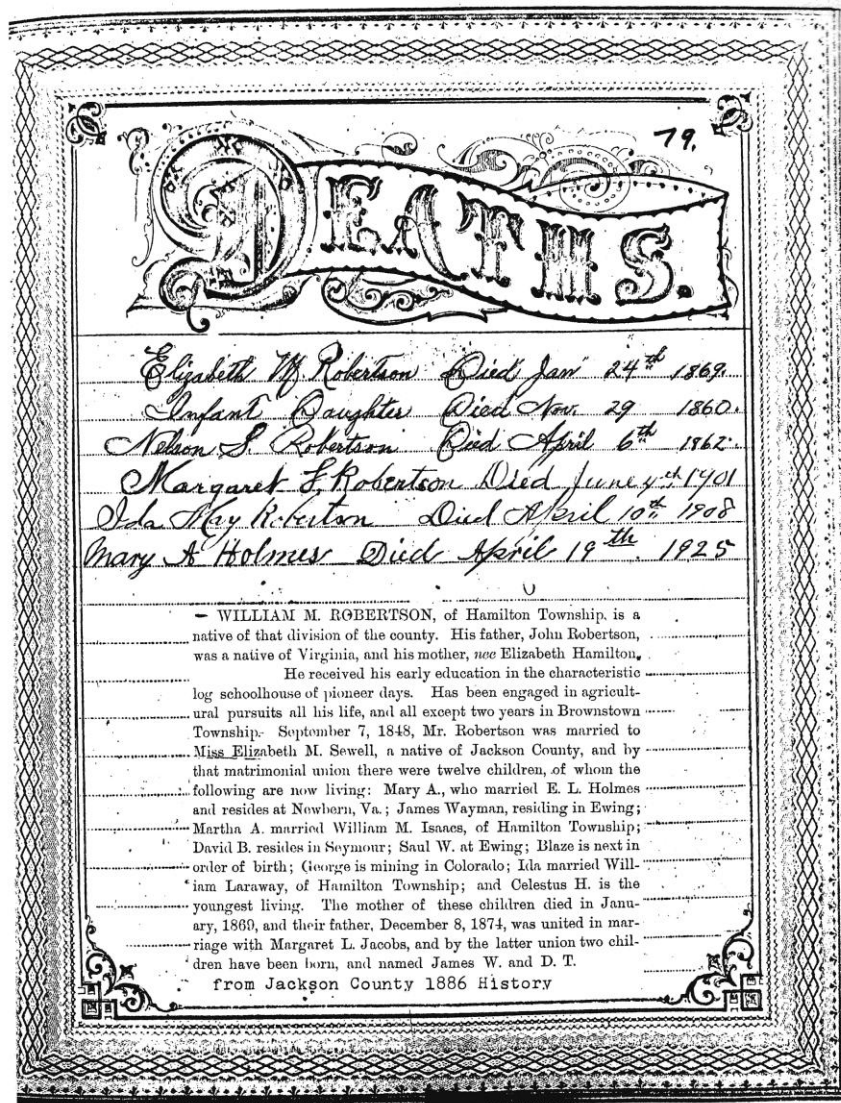 79.
DEATHS.
Elizabeth M Robertson Died Jan 24th 1869.
Infant Daughter Died Nov. 29 1860.
Nelson S. Robertson Died April 6th 1862.
Margaret L. Robertson Died June 4th 1901
Ida May Robertson Died April 10th 1908
Mary A Holmes Died April 19th 1925
– WILLIAM M. ROBERTSON, of Hamilton Township, is a
native of that division of the county. His father, John Robertson,
was a native of Virginia, and his mother, nee Elizabeth Hamilton.
He received his early education in the characteristic
log schoolhouse of pioneer days. Has been engaged in agricult-
ural pursuits all his life, and all except two years in Brownstown
Township. September 7, 1848, Mr. Robertson was married to
Miss Elizabeth M. Sewell, a native of Jackson County, and by
that matrimonial union there were twelve children, of whom the
following are now living: Mary A., who married E. L. Holmes
and resides at Newbern, Va.; James Wayman, residing in Ewing;
Martha A. married William M. Isaacs, of Hamilton Township;
David B. resides in Seymour; Saul W. at Ewing; Blaze is next in
order of birth; George is mining in Colorado; Ida married Will-
iam Laraway, of Hamilton Township; and Celestus H. is the
youngest living. The mother of these children died in Janu-
ary, 1869, and their father, December 8, 1874, was united in mar-
riage with Margaret L. Jacobs, and by the latter union two chil-
dren have been born, and named James W. and D. T.
from Jackson County 1886 History